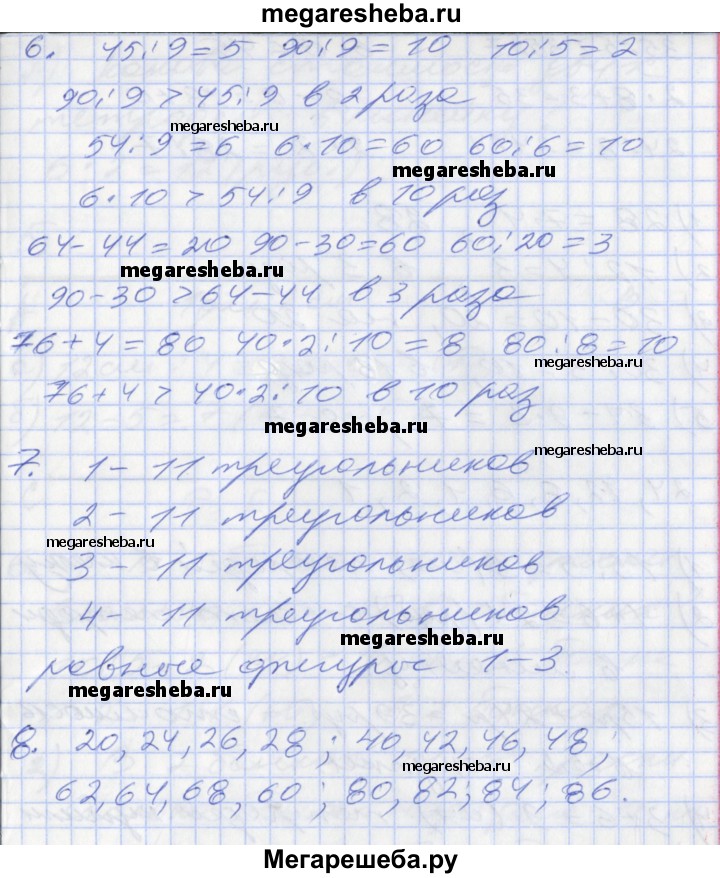 megaresheba.ru
6. 45:9=5 90:9=10 10:5=2
90:9 > 45:9 в 2 раза
megaresheba.ru
54:9=6 6·10=60 60:6=10
megaresheba.ru
6·10 > 54:9 в 10 раз
64-44=20 90-30=60 60:20=3
megaresheba.ru
90-30 > 64-44 в 3 раза
76+4=80 40·2:10=8 80:8=10
megaresheba.ru
76+4 > 40·2:10 в 10 раз
megaresheba.ru
7. 1- 11 треугольников
2- 11 треугольников
megaresheba.ru
3- 11 треугольников
4- 11 треугольников
megaresheba.ru
равные фигуры 1-3.
megaresheba.ru
8. 20, 24, 26, 28; 40, 42, 46, 48;
megaresheba.ru
62, 64, 68, 60; 80, 82; 84; 86.
Мегарешеба.ру